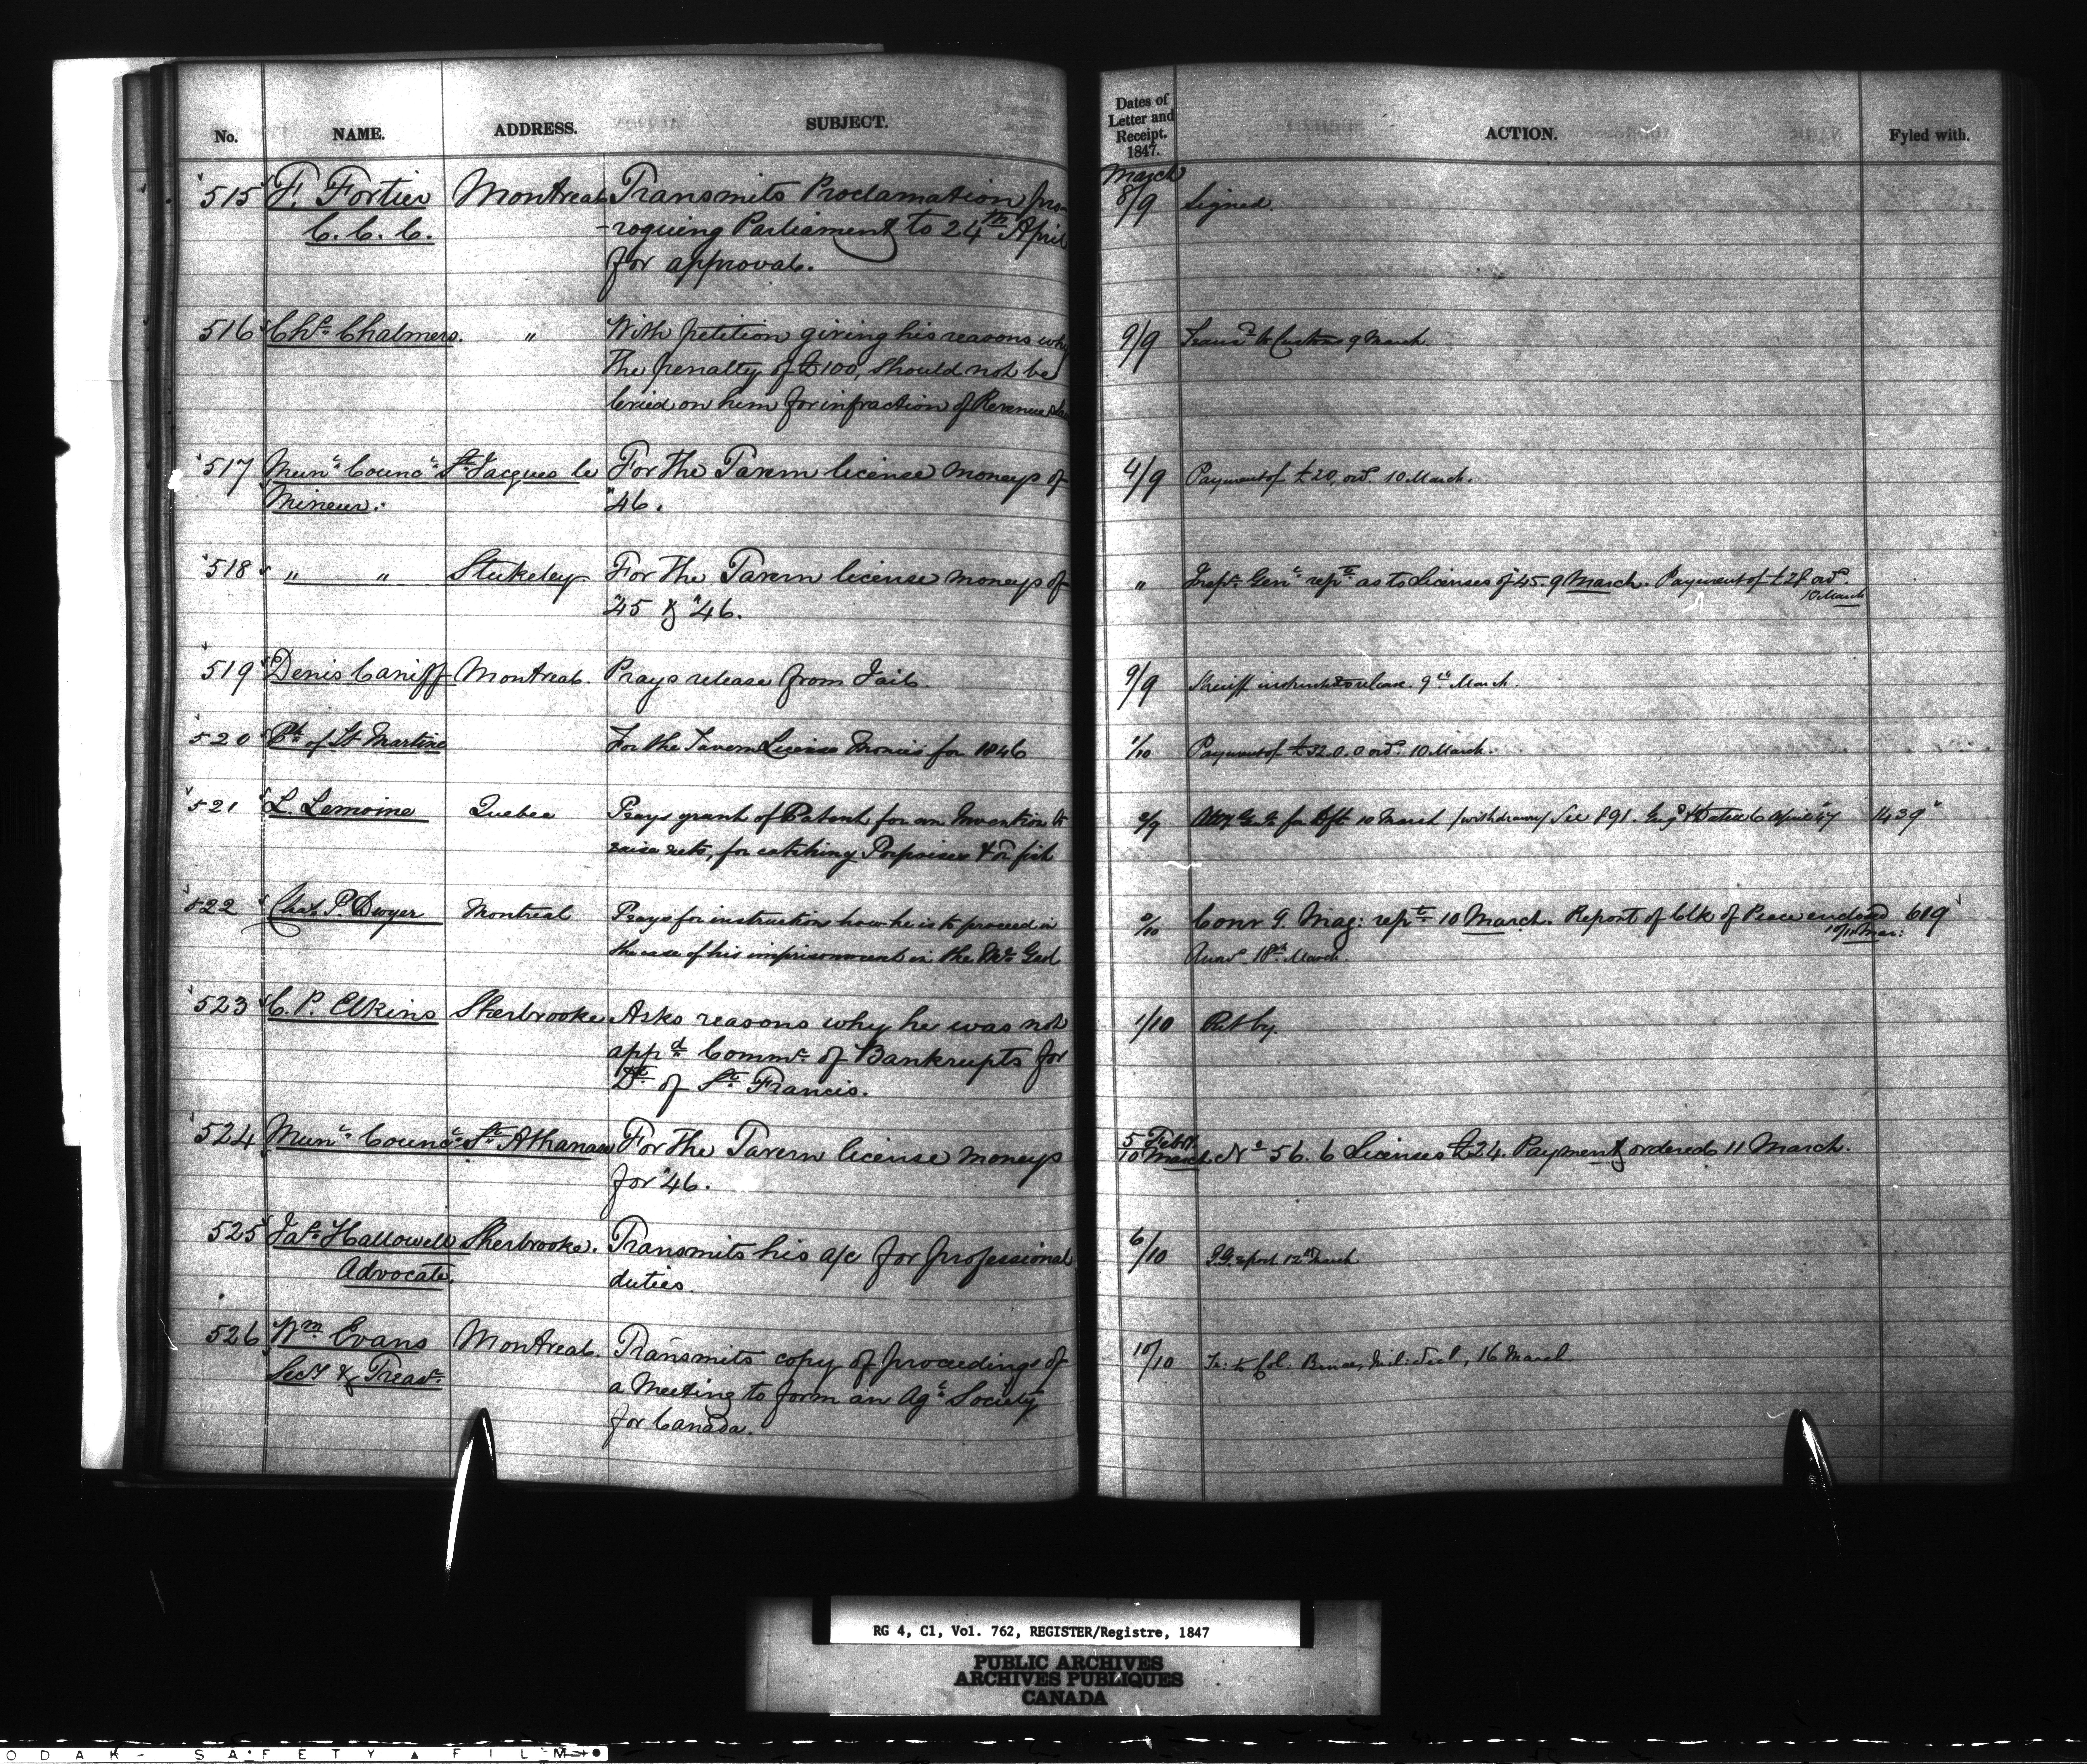 No. NAME. ADDRESS. SUBJECT. Dates of Letter and Receipt. 1847. ACTION. Fyled with.
March
515 F. Fortier Montreal Transmits Proclamation pro- 8/9 Signed.
C. C. C. -roguing Parliament to 24th April
for approval.
516 Chs. Chalmers. " With petition giving his reasons why 9/9 Transd. to Customs 9 March.
The penalty of £100, should not be
levied on him for infraction of Revenue
517 Munl. Councl. St. Jacques le For the Tavern license moneys of 4/9 Payment of £20, ord. 10 March.
Mineur. "46.
518 " " Stukeley For the Tavern license moneys of " Inspr. Genl. repts. as to Licenses of 45. 9 March. Payment of £28 ord.
"45 & "46. 10 March
519 Denis Caniff Montreal. Prays release from Jail. 9/9 Sheriff instructed to release. 9th March.
520 Ph. of St Martine For the Tavern License Monies for 1846 1/10 Payment of £32.0.0 ord. 10 March.
521 L. Lemoine Quebec Prays grant of Patent for an Invention to 2/9 Atty Genl. for Dft 10 March /withdrawn/ See 891. Engd. & Dated 6 April 47 1439
raise nets, for catching Porpoises & or fish
522 Chas P. Dwyer Montreal Prays for instruction how he is to proceed in 9/10 Mag: rept. 10 March. Report of Clk of Peace enclosed 619
10/11 Mar:
the case of his imprisonment in the Gaol Answd. 18th March.
523 C. P. Elkins Sherbrooke Asks reasons why he was not 1/10 Put by.
appd. Commr. of Bankrupts for
Dt. of St. Francis.
524 Munl. Councl. St. Athanase For the Tavern license moneys 5 Feby. 10 March No. 56. 6 Licenses £24. Payment ordered 11 March.
for "46.
525 Jas. Hallowell Sherbrooke. Transmits his a/c for professional 6/10 I.G. report 12th March
Advocate. duties.
526 Wm. Evans Montreal. Transmits copy of proceedings of 10/10 Tr: to Col. Bruce, Mil: Secy, 16 March
Secy & Treasr. a Meeting to form an Agl. Society
for Canada.
RG 4, C1, Vol. 762, REGISTER/Registre, 1847
PUBLIC ARCHIVES
ARCHIVES PUBLIQUES
CANADA
ODAK - SAFETY ▲ FILM